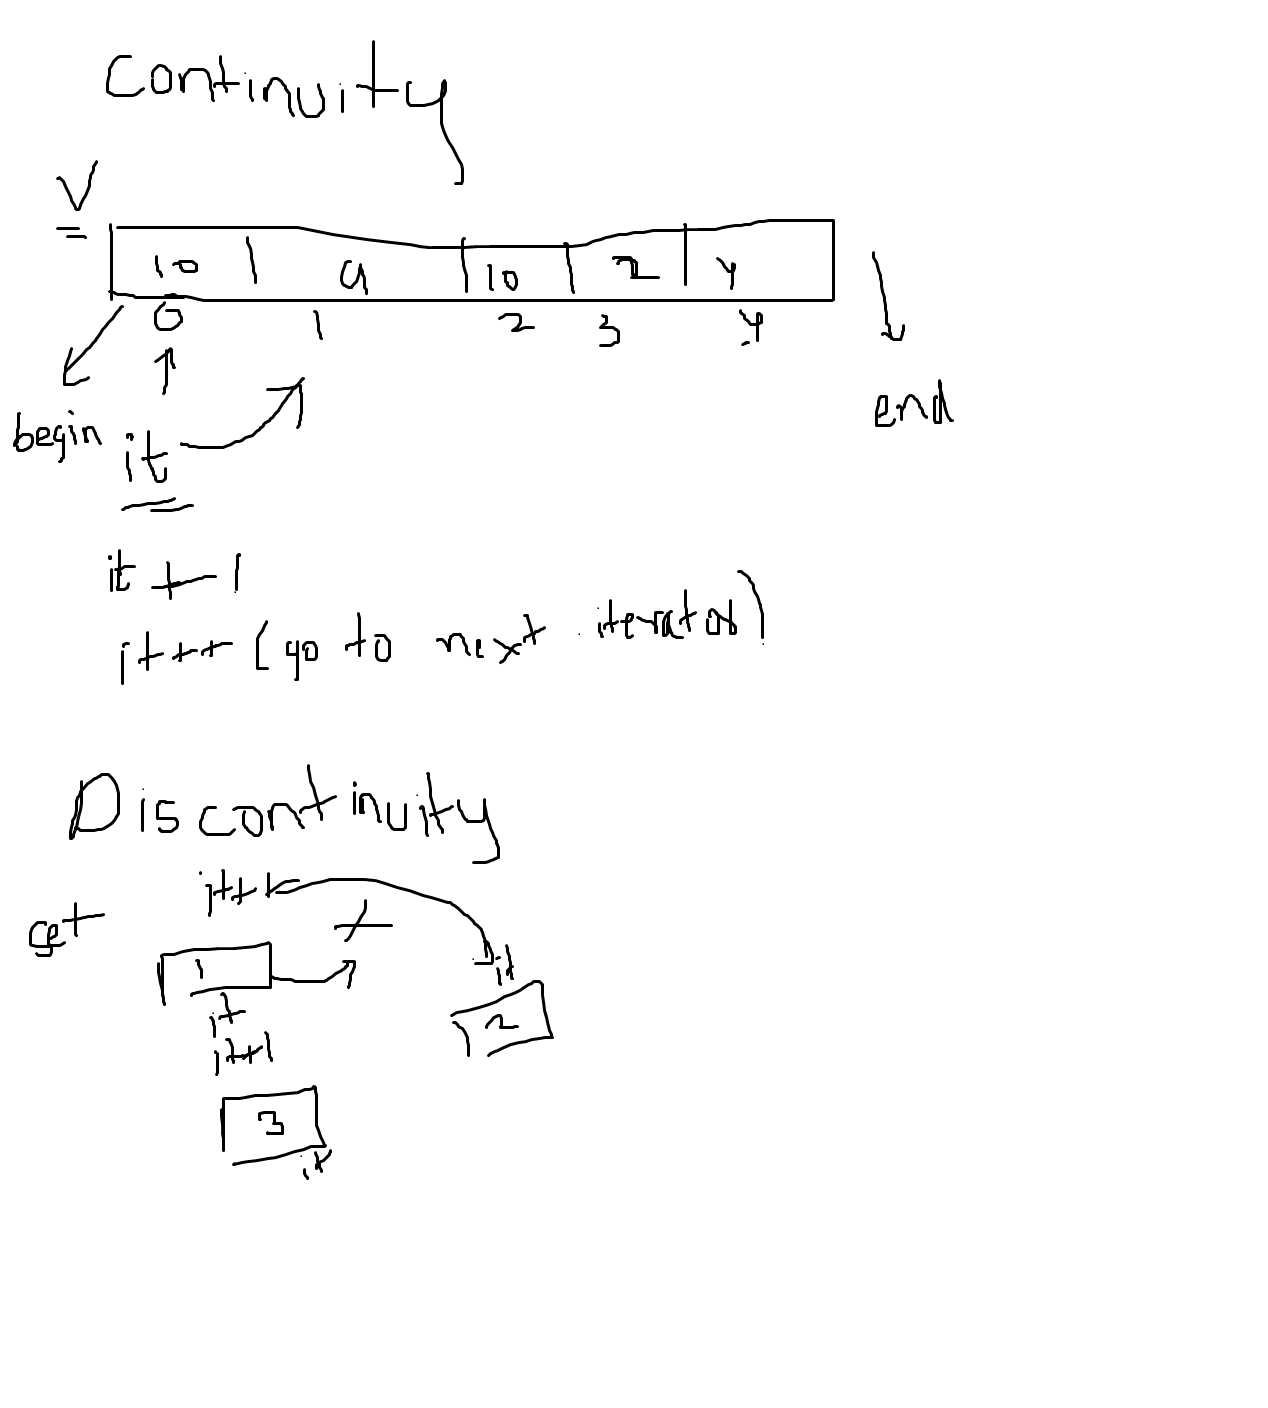 Continuity
V
10 9 10 2 4
0 1 2 3 4
begin it end
it + 1
it++ (go to next iterator)
Discontinuity
it++
set
1 it
it 2
it+1
3
it